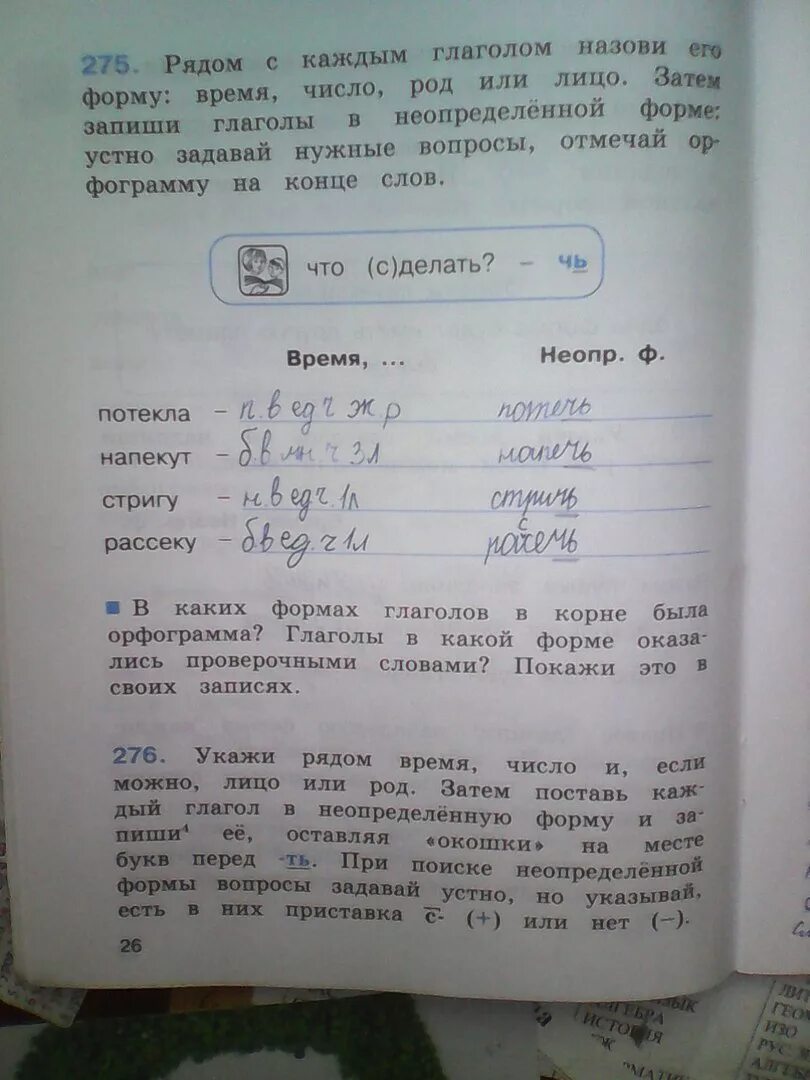 275. Рядом с каждым глаголом назови его
форму: время, число, род или лицо. Затем
запиши глаголы в неопределённой форме;
устно задавай нужные вопросы, отмечай ор-
фограмму на конце слов.
что (с)делать? – чь
Время, ... Неопр. ф.
потекла – п.в ед ч ж.р потечь
напекут – б.в мн ч 3л напечь
стригу – н.в ед ч. 1л стричь
рассеку – б в ед. ч 1л рассечь
В каких формах глаголов в корне была
орфограмма? Глаголы в какой форме оказа-
лись проверочными словами? Покажи это в
своих записях.
276. Укажи рядом время, число и, если
можно, лицо или род. Затем поставь каж-
дый глагол в неопределённую форму и за-
пиши её, оставляя «окошки» на месте
букв перед -ть. При поиске неопределённой
формы вопросы задавай устно, но указывай,
есть в них приставка с- (+) или нет (–).
26
ИСТОРИЯ
ЛИТ
ГЕОМ
ИЗО
РУС